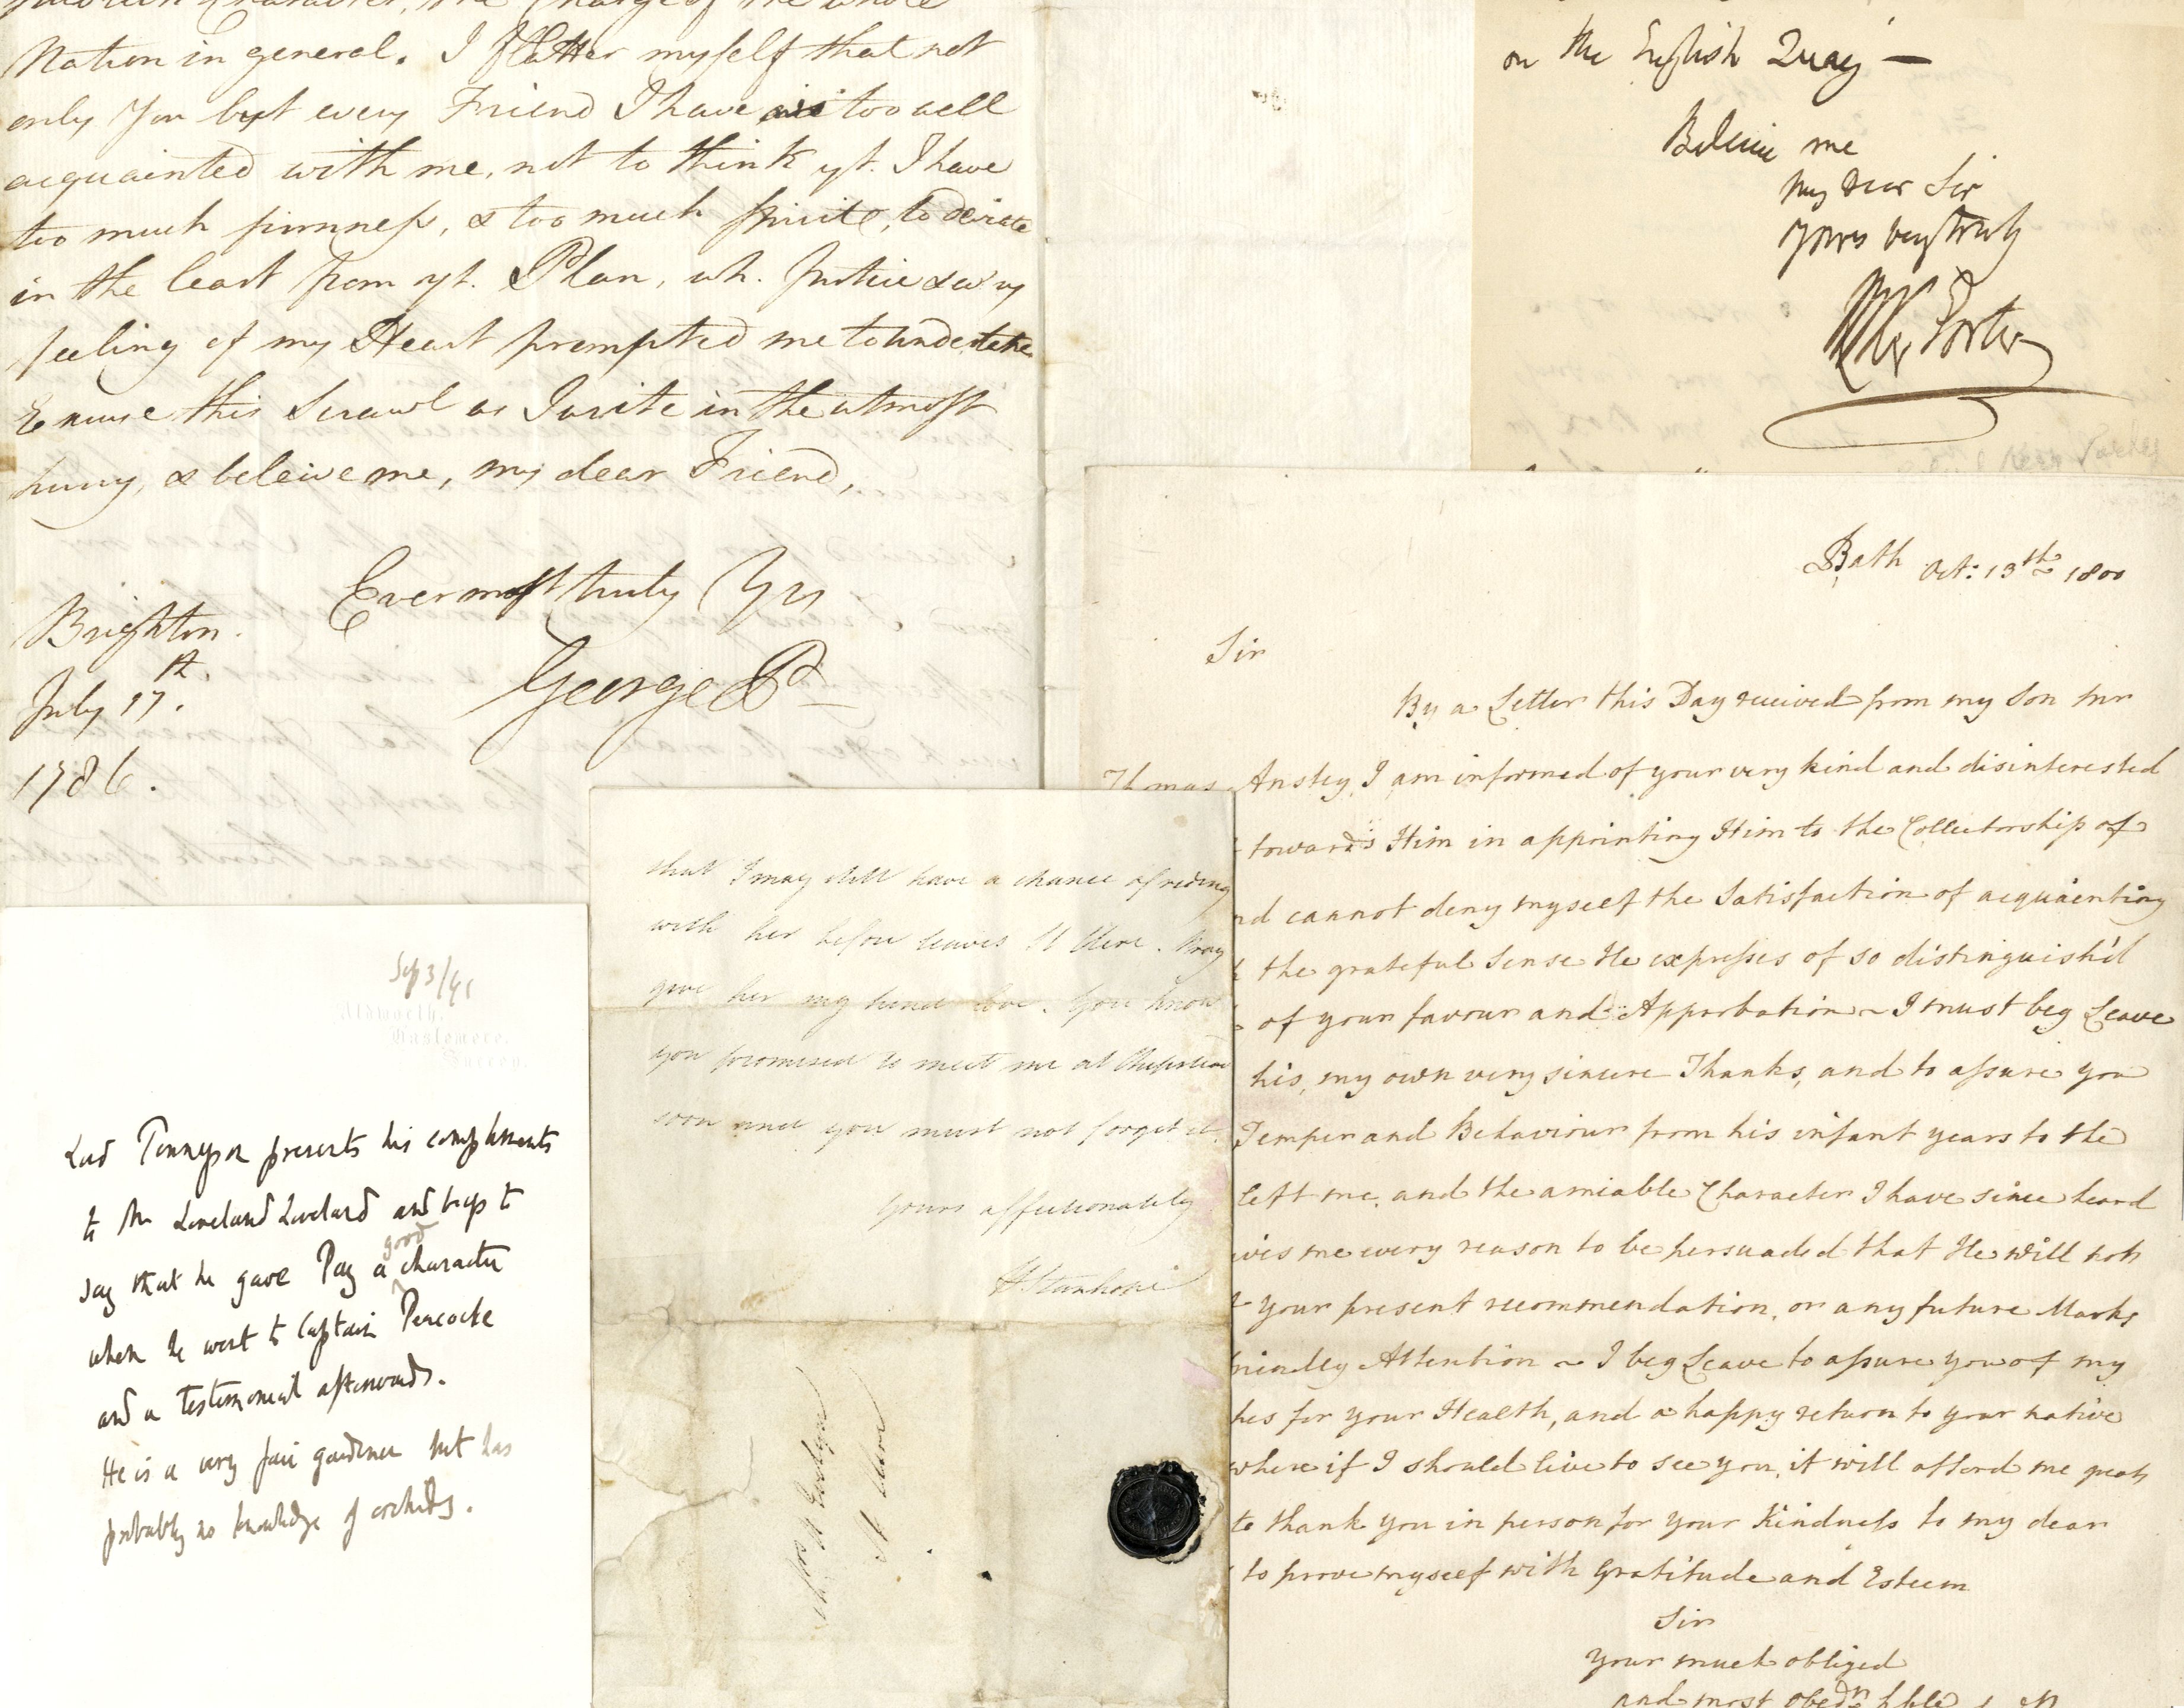 Nation in general. I flatter myself that not
only You but every Friend I have is too well
acquainted with me, not to think yt. I have
too much firmness, & too much spirit, to deviate
in the least from yt. Plan, wh. Justice & every
feeling of my Heart prompted me to undertake
Excuse this Scrawl as I write in the utmost
hurry, & beleive me, my dear Friend,
Ever most truly Yrs
George P
Brighton.
July 17th.
1786.
on the English Quay —
Believe me
my dear Sir
yours very truly
Porter
Bath Oct: 13th 1800
Sir
By a Letter this Day received from my Son Mr
Thomas Anstey, I am informed of your very kind and disinterested
towards Him in appointing Him to the Collectorship of
nd cannot deny myself the Satisfaction of acquainting
the grateful Sense He expresses of so distinguish'd
of your favour and Approbation ~ I must beg Leave
his, my own very sincere Thanks, and to assure you
Temper and Behaviour from his infant years to the
left me, and the amiable Character I have since heard
ives me every reason to be persuaded that He will not
your present recommendation, or any future Marks
riendly Attention ~ I beg Leave to assure you of my
hes for your Health, and a happy return to your native
where if I should live to see you, it will afford me great
to thank you in person for your Kindness to my dear
to prove myself with Gratitude and Esteem
Sir
your much obliged
and most obedn hble
that I may still have a chance of riding
with her before leaves St Clere. Pray
give her my kind love. You know
you promised to meet me at Chepstead
soon and you must not forget it.
Yours affectionately
Stanhope
Mrs Evelyn
St Clere
Sep 3/91
Aldworth,
Haslemere,
Surrey.
Lord Tennyson presents his compliments
to Mr Loveland Loveland and begs to
say that he gave Pay a good character
when he went to Captain Peacocke
and a testimonial afterwards.
He is a very fair gardener but has
probably no knowledge of orchids.